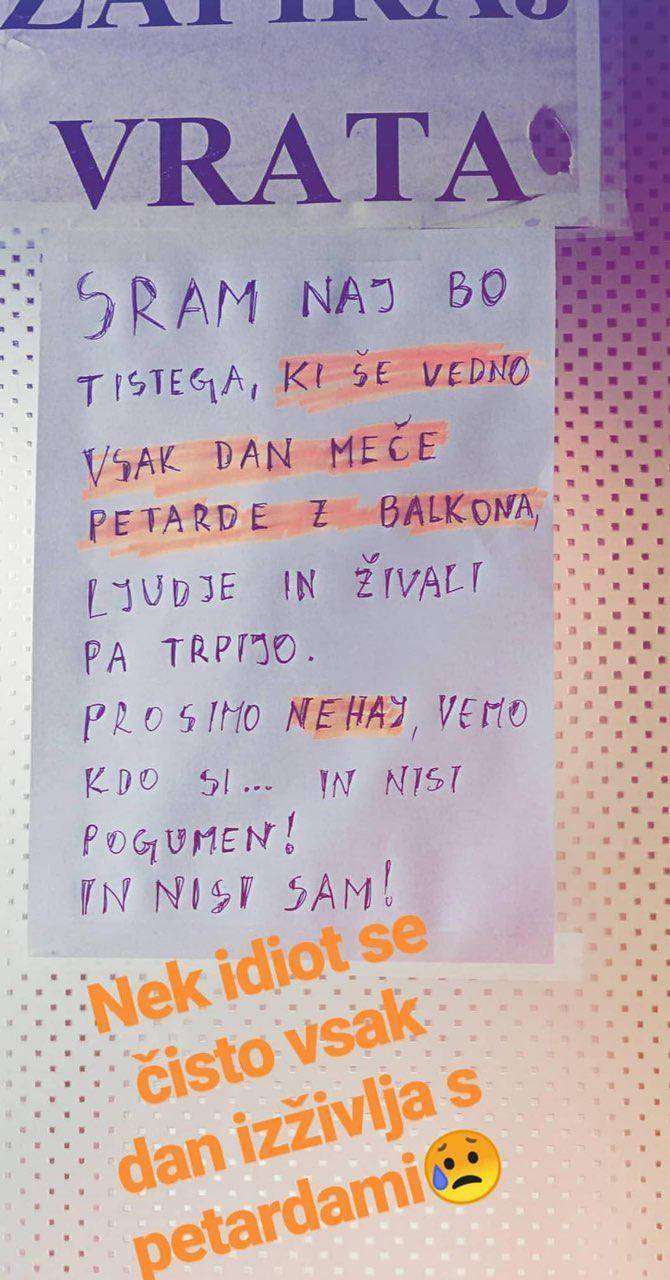 ZAPIRAJ
VRATA
SRAM NAJ BO
TISTEGA, KI ŠE VEDNO
VSAK DAN MEČE
PETARDE Z BALKONA,
LJUDJE IN ŽIVALI
PA TRPIJO.
PROSIMO NEHAJ, VEMO
KDO SI... IN NISI
POGUMEN!
IN NISI SAM!
Nek idiot se
čisto vsak
dan izživlja s
petardami😥